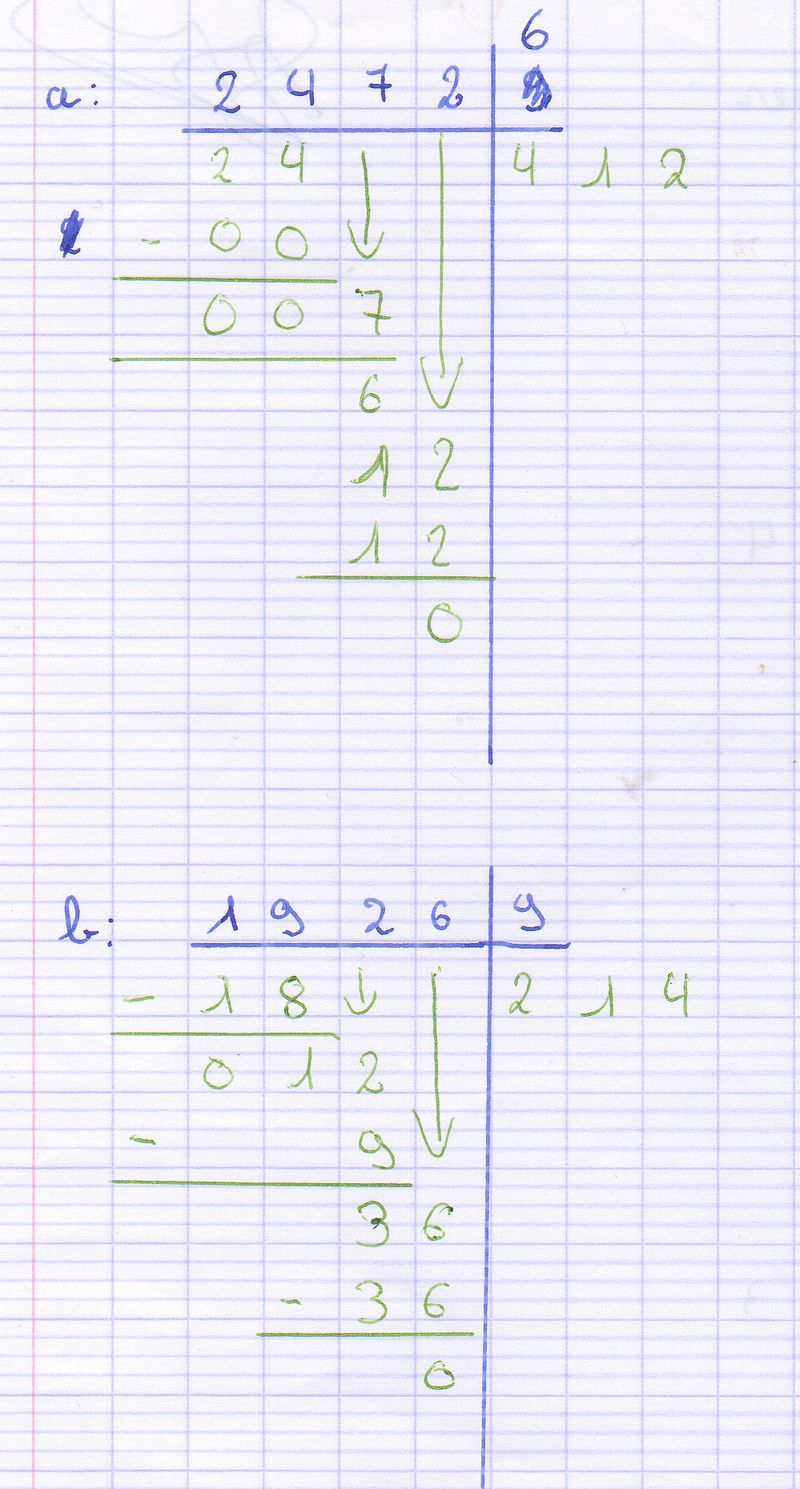 6
a: 2 4 7 2
2 4 4 1 2
- 0 0
0 0 7
6
1 2
1 2
0
b: 1 9 2 6 9
- 1 8 2 1 4
0 1 2
- 9
3 6
- 3 6
0